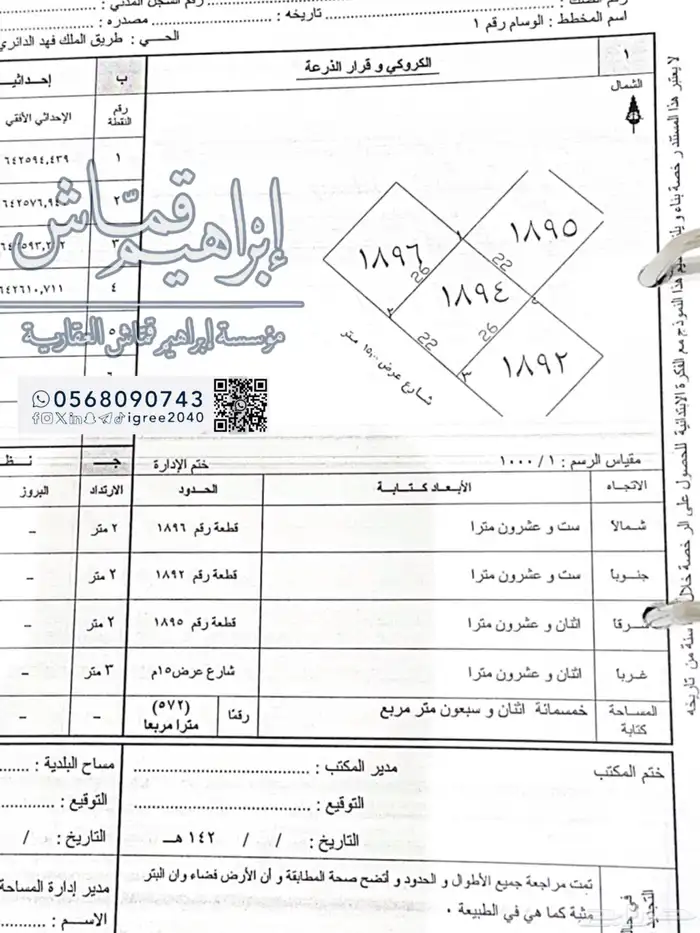 اسم المخطط : الوسام رقم ١
تاريخه :
مصدره :
الحي : طريق الملك فهد الدائري
١
الكروكي و قرار الذرعة
ب
الشمال
رقم النقطة
الإحداثي الأفقي
١
٦٤٢٥٩٤,٤٣٩
٢
٣
٤
٦٤٢٦١٠,٧١١
١٨٩٥
١٨٩٦
١٨٩٤
١٨٩٢
22
26
22
26
١
٢
٣
شارع عرض ١٥,٠٠ متر
إبراهيم قمّاش
مؤسسة إبراهيم قمّاش العقارية
0568090743
igree2040
مقياس الرسم : ١ / ١٠٠٠
ختم الإدارة
جـ
الاتجاه
الأبعاد كتابة
الحدود
الارتداد
البروز
شمالاً
ست و عشرون مترا
قطعة رقم ١٨٩٦
٢ متر
–
جنوباً
ست و عشرون مترا
قطعة رقم ١٨٩٢
٢ متر
–
شرقا
اثنان و عشرون مترا
قطعة رقم ١٨٩٥
٢ متر
–
غرباً
اثنان و عشرون مترا
شارع عرض١٥م
٣ متر
–
المساحة كتابة
خمسمائة اثنان و سبعون متر مربع
رقمًا
(٥٧٢) مترا مربعا
–
–
ختم المكتب
مدير المكتب :
مساح البلدية :
التوقيع :
التوقيع :
التاريخ : / / ١٤٢ هـ
التاريخ : /
تمت مراجعة جميع الأطوال و الحدود و أتضح صحة المطابقة و أن الأرض فضاء وان البتر
مدير إدارة المساحة
منبة كما هي في الطبيعة .
الاسم :